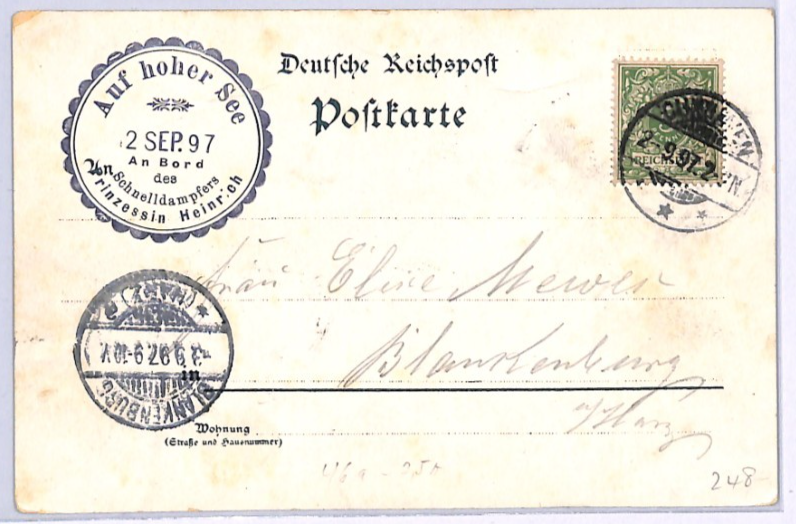 Auf hoher See
2 SEP. 97
An Bord
des
Schnelldampfers
Prinzessin Heinrich
Deutsche Reichspost
Postkarte
REICHSPOST
2-9.97. 2-
An
Frau Elise Mewes
in Blankenburg
a/Harz
(HARZ)
3.9.97. 9-10V.
BLANKENBURG
Wohnung
(Straße und Hausnummer)
46a - 25A
248